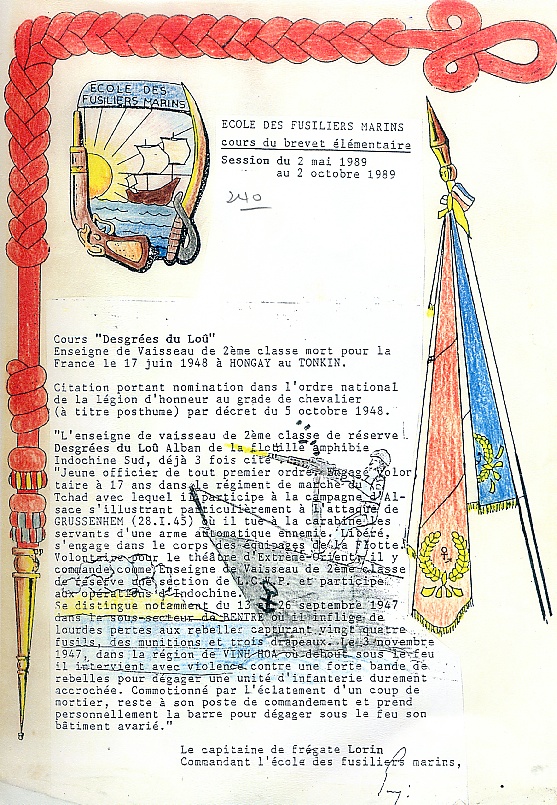 ECOLE DES
FUSILIERS MARINS
ECOLE DES FUSILIERS MARINS
cours du brevet élémentaire
Session du 2 mai 1989
au 2 octobre 1989
240
Cours "Desgrées du Loû"
Enseigne de Vaisseau de 2ème classe mort pour la
France le 17 juin 1948 à HONGAY au TONKIN.
Citation portant nomination dans l'ordre national
de la légion d'honneur au grade de chevalier
(à titre posthume) par décret du 5 octobre 1948.
"L'enseigne de vaisseau de 2ème classe de réserve
Desgrées du Loû Alban de la flotille amphibie
Indochine Sud, déjà 3 fois cité"
"Jeune officier de tout premier ordre. Engagé volon
taire à 17 ans dans le régiment de marche du
Tchad avec lequel il participe à la campagne d'Al-
sace s'illustrant particulièrement à l'attaque de
GRUSSENHEM (28.I.45) où il tue à la carabine les
servants d'une arme automatique ennemie. Libéré,
s'engage dans le corps des équipages de la Flotte.
Volontaire pour le théâtre d'Extrême-Orient, il y
commande comme Enseigne de Vaisseau de 2ème classe
de réserve une section de L.C.V.P. et participe
aux opérations d'Indochine.
Se distingue notamment du 13 au 26 septembre 1947
dans le sous-secteur de BENTRE où il inflige de
lourdes pertes aux rebelles capturant vingt quatre
fusils, des munitions et trois drapeaux. Le 3 novembre
1947, dans la région de VINH HOA où debout sous le feu
il intervient avec violence contre une forte bande de
rebelles pour dégager une unité d'infanterie durement
accrochée. Commotionné par l'éclatement d'un coup de
mortier, reste à son poste de commandement et prend
personnellement la barre pour dégager sous le feu son
bâtiment avarié."
Le capitaine de frégate Lorin
Commandant l'école des fusiliers marins,